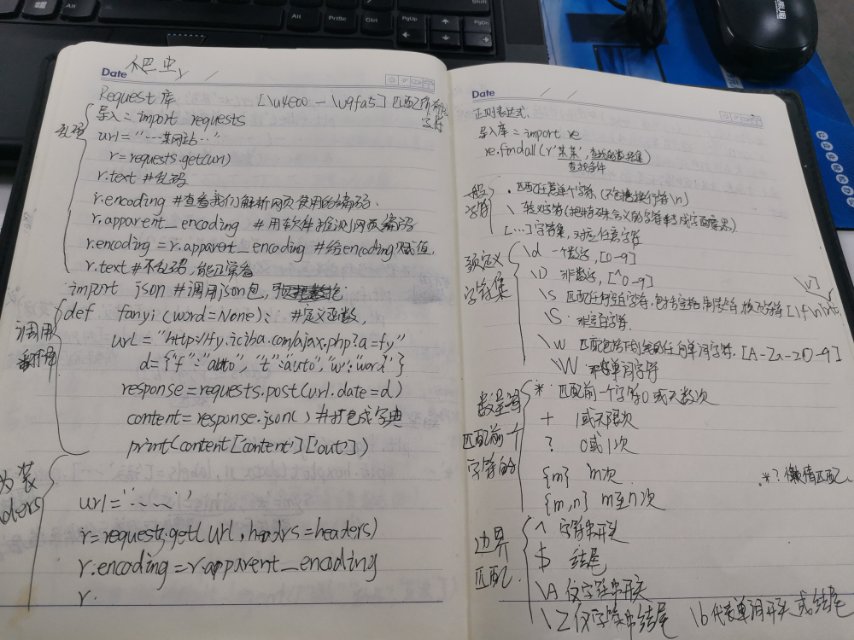 Date 爬虫
Request库 [\u4e00-\u9fa5] 匹配所有汉字
乱码
导入: import requests
url="…某网站…"
r=requests.get(url)
r.text #乱码
r.encoding #查看我们解析网页使用的编码.
r.apparent_encoding #用软件推测网页编码
r.encoding=r.apparent_encoding #给encoding赋值.
r.text #不乱码,能正常看
import json #调用json包,
调用
翻译
def fanyi (word=None): #定义函数,
url="http://fy.iciba.com/ajax.php?a=fy"
d={"f":"auto", "t":"auto", "w":word"}
response=requests.post(url.date=d)
content=response.json() #打包成字典
print(content['content']['out'])
伪装
headers
url="……"
r=requests.get(url,headrs=headers)
r.encoding=r.apparent_encoding
r.
Date
正则表达式.
导入库: import re
re.findall(r'某某',
查找条件
一般
字符
. 匹配任意字符(不包括换行符\n)
\ 转义字符(把特殊含义的字符
[…]字符集,对应任意字符
预定义
字符集
\d 一个数字,[0-9]
\D 非数字,[^0-9]
\s 匹配任何空白字符,包括空格,制表符,换页字符
\S 非空白字符.
\w 匹配包括下划线的任何单词字符.[A-Za-z0-9]
\W 单词字符
数量词
匹配前一个
字符的
* 匹配前一个字符0或无数次
+ 1或无限次
? 0或1次
{m} m次 .*? 懒惰匹配
{m,n} m至n次
边界
匹配.
^ 字符串开头
$ 结尾
\A 仅字符串开头
\Z 仅字符串结尾 \b代表单词开头或结尾